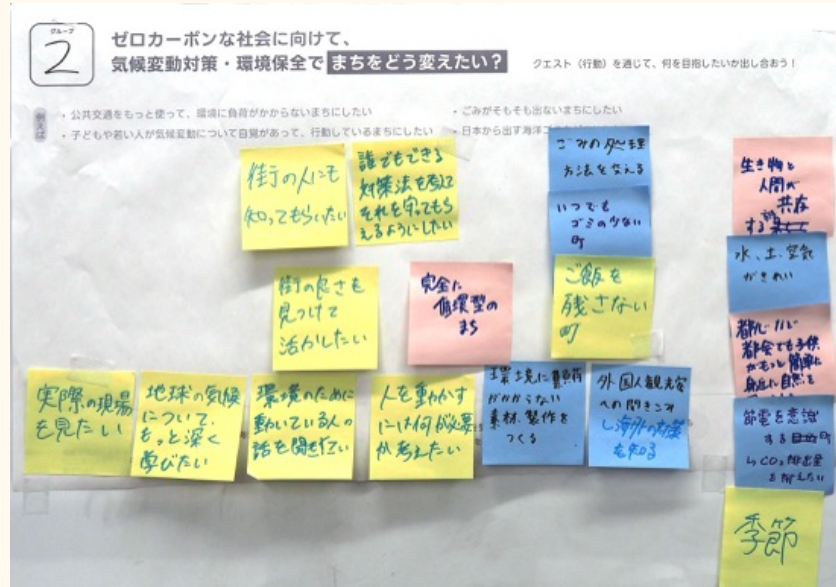 グループ
2
ゼロカーボンな社会に向けて、
気候変動対策・環境保全で まちをどう変えたい?
クエスト(行動)を通じて、何を目指したいか出し合おう!
例えば
・公共交通をもっと使って、環境に負荷がかからないまちにしたい
・ごみがそもそも出ないまちにしたい
・子どもや若い人が気候変動について自覚があって、行動しているまちにしたい
・日本から出す海洋ゴ
街の人にも
知ってもらいたい
誰でもできる
対策法を考えて
それを守ってもら
えるようにしたい
ごみの処理
方法を変える
いつでも
ゴミの少ない
町
生き物と
人間が
共存
する
街の良さも
見つけて
活かしたい
完全に
循環型の
まち
ご飯を
残さない
町
水、土、空気
がきれい
都会でも子供
がもっと簡単に
身近に自然を
実際の現場
を見たい
地球の気候
について、
もっと深く
学びたい
環境のために
動いている人の
話を聞きたい
人を動かす
には何が必要
か考えたい
環境に負荷
がかからない
素材、製作を
つくる
外国人観光客
への聞きこみ
し海外の対策
を知る
節電を意識
する町
CO2排出量
を抑えたい
季節